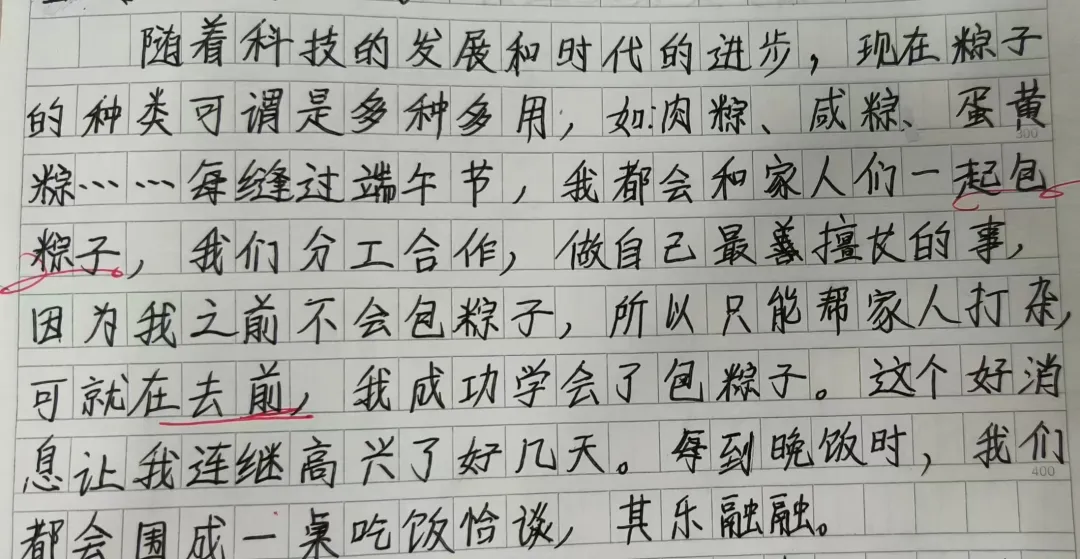 随着科技的发展和时代的进步，现在粽子
的种类可谓是多种多用，如:肉粽、咸粽、蛋黄
300
粽……每缝过端午节，我都会和家人们一起包
粽子，我们分工合作，做自己最善擅仗的事，
因为我之前不会包粽子，所以只能帮家人打杂，
可就在去前，我成功学会了包粽子。这个好消
息让我连继高兴了好几天。每到晚饭时，我们
400
都会围成一桌吃饭恰谈，其乐融融。